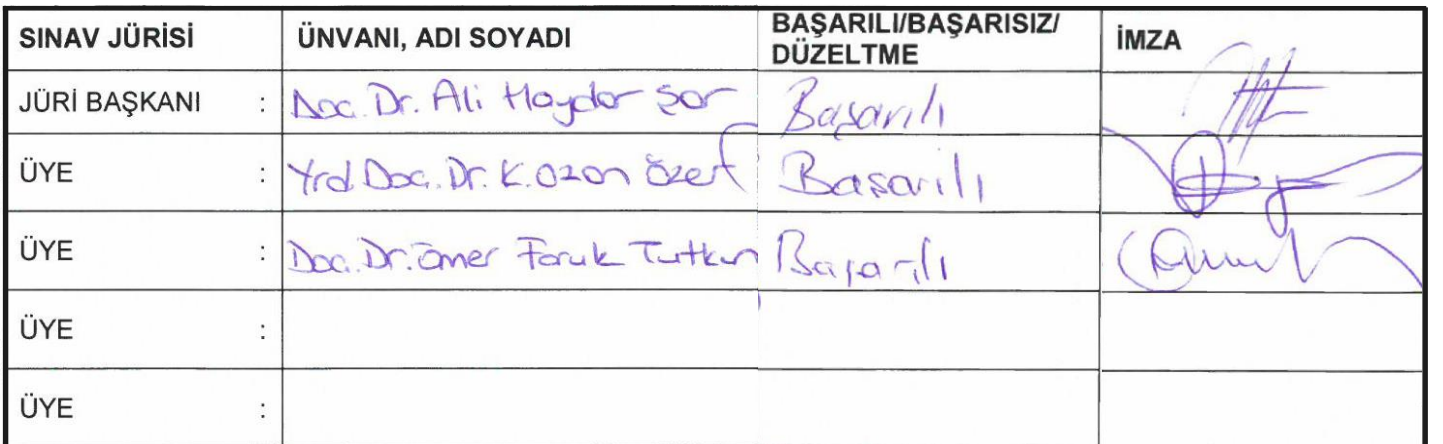 SINAV JÜRİSİ ÜNVANI, ADI SOYADI BAŞARILI/BAŞARISIZ/ DÜZELTME İMZA
JÜRİ BAŞKANI : Doc. Dr. Ali Haydar Şar Başarılı
ÜYE : Yrd. Doc. Dr. K. Ozan Özer Başarılı
ÜYE : Doc. Dr. Ömer Faruk Tutkun Başarılı
ÜYE :
ÜYE :